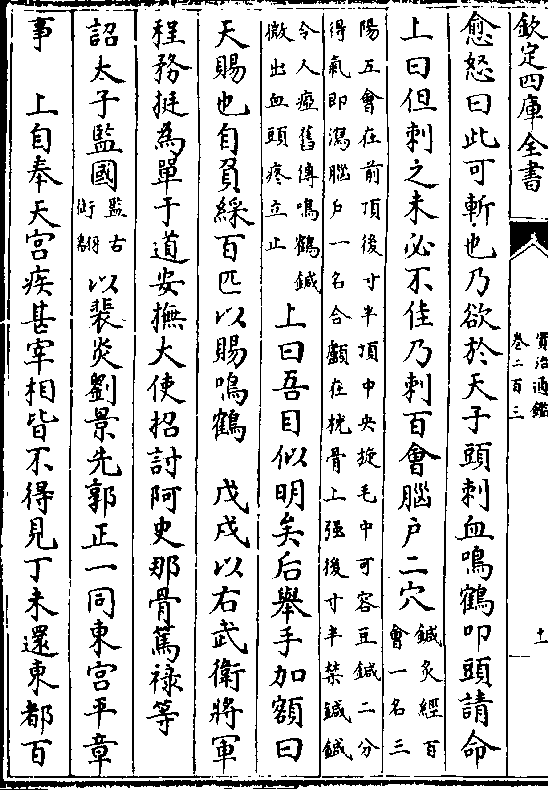 欽定四庫全書
資治通鑑
卷二百三
十一
愈怒曰此可斬也乃欲於天子頭刺血鳴鶴叩頭請命
上曰但刺之未必不佳乃刺百會腦戶二穴鍼灸經百會一名三
陽五會在前頂後寸半頂中央旋毛中可容豆鍼二分
得氣即瀉腦戶一名合顱在枕骨上强後寸半禁鍼鍼
令人瘂舊傳鳴鶴鍼
微出血頭疼立止
上曰吾目似明矣后舉手加額曰
天賜也自負綵百匹以賜鳴鶴 戊戌以右武衛將軍
程務挺為單于道安撫大使招討阿史那骨篤祿等
詔太子監國監古銜翻以裴炎劉景先郭正一同東宫平章
事 上自奉天宫疾甚宰相皆不得見丁未還東都百